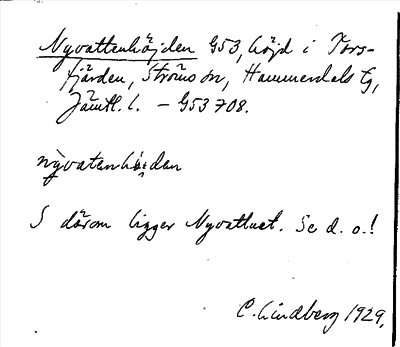 Nyvattenhöjden 953, höjd i Fors-
fjärden, Ströms sn, Hammerdals tg,
Jämtl. l. – 953 708.
nỳvatenhöiden
S därom ligger Nyvattnet. Se d. o.!
C. Lindberg 1929.